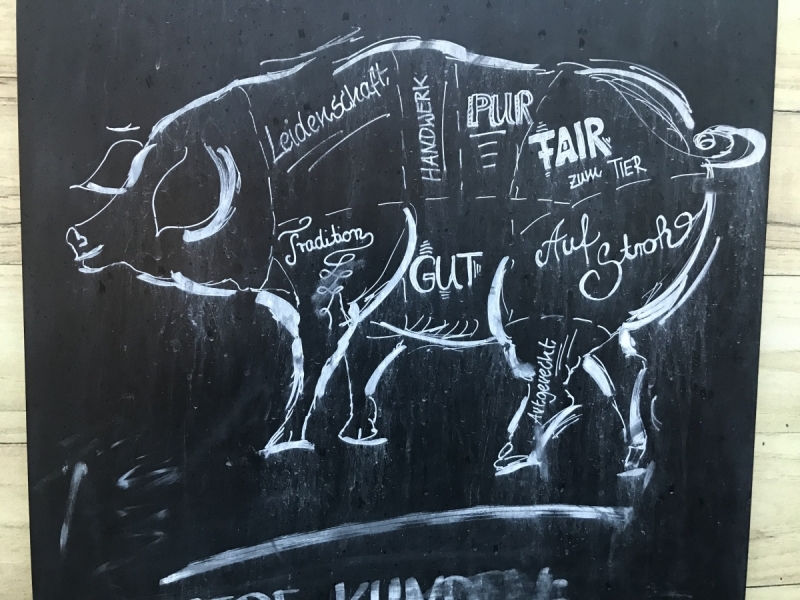 Leidenschaft
HANDWERK
PUR
FAIR
zum TIER
Tradition
GUT
Auf
Stroh
Artgerecht